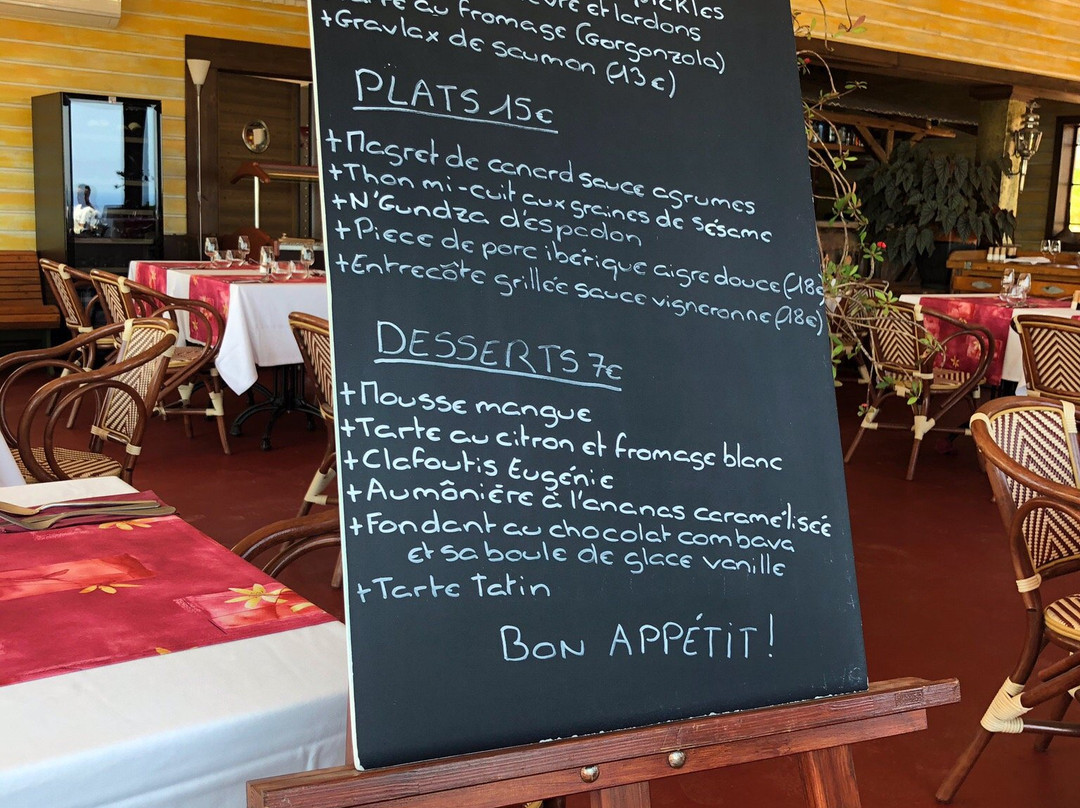 pickles
et lardons
au fromage (Gorgonzola)
+Gravlax de saumon (13€)
PLATS 15€
+Magret de canard sauce agrumes
+Thon mi-cuit aux graines de sésame
+N'Gundza d'espadon
+Piece de porc ibérique aigre douce (18€
+Entrecôte grillée sauce vigneronne (18€)
DESSERTS 7€
+Mousse mangue
+Tarte au citron et fromage blanc
+Clafoutis Eugénie
+Aumônière à l'ananas caramélisée
+Fondant au chocolat combava
et sa boule de glace vanille
+Tarte Tatin
BON APPÉTIT!